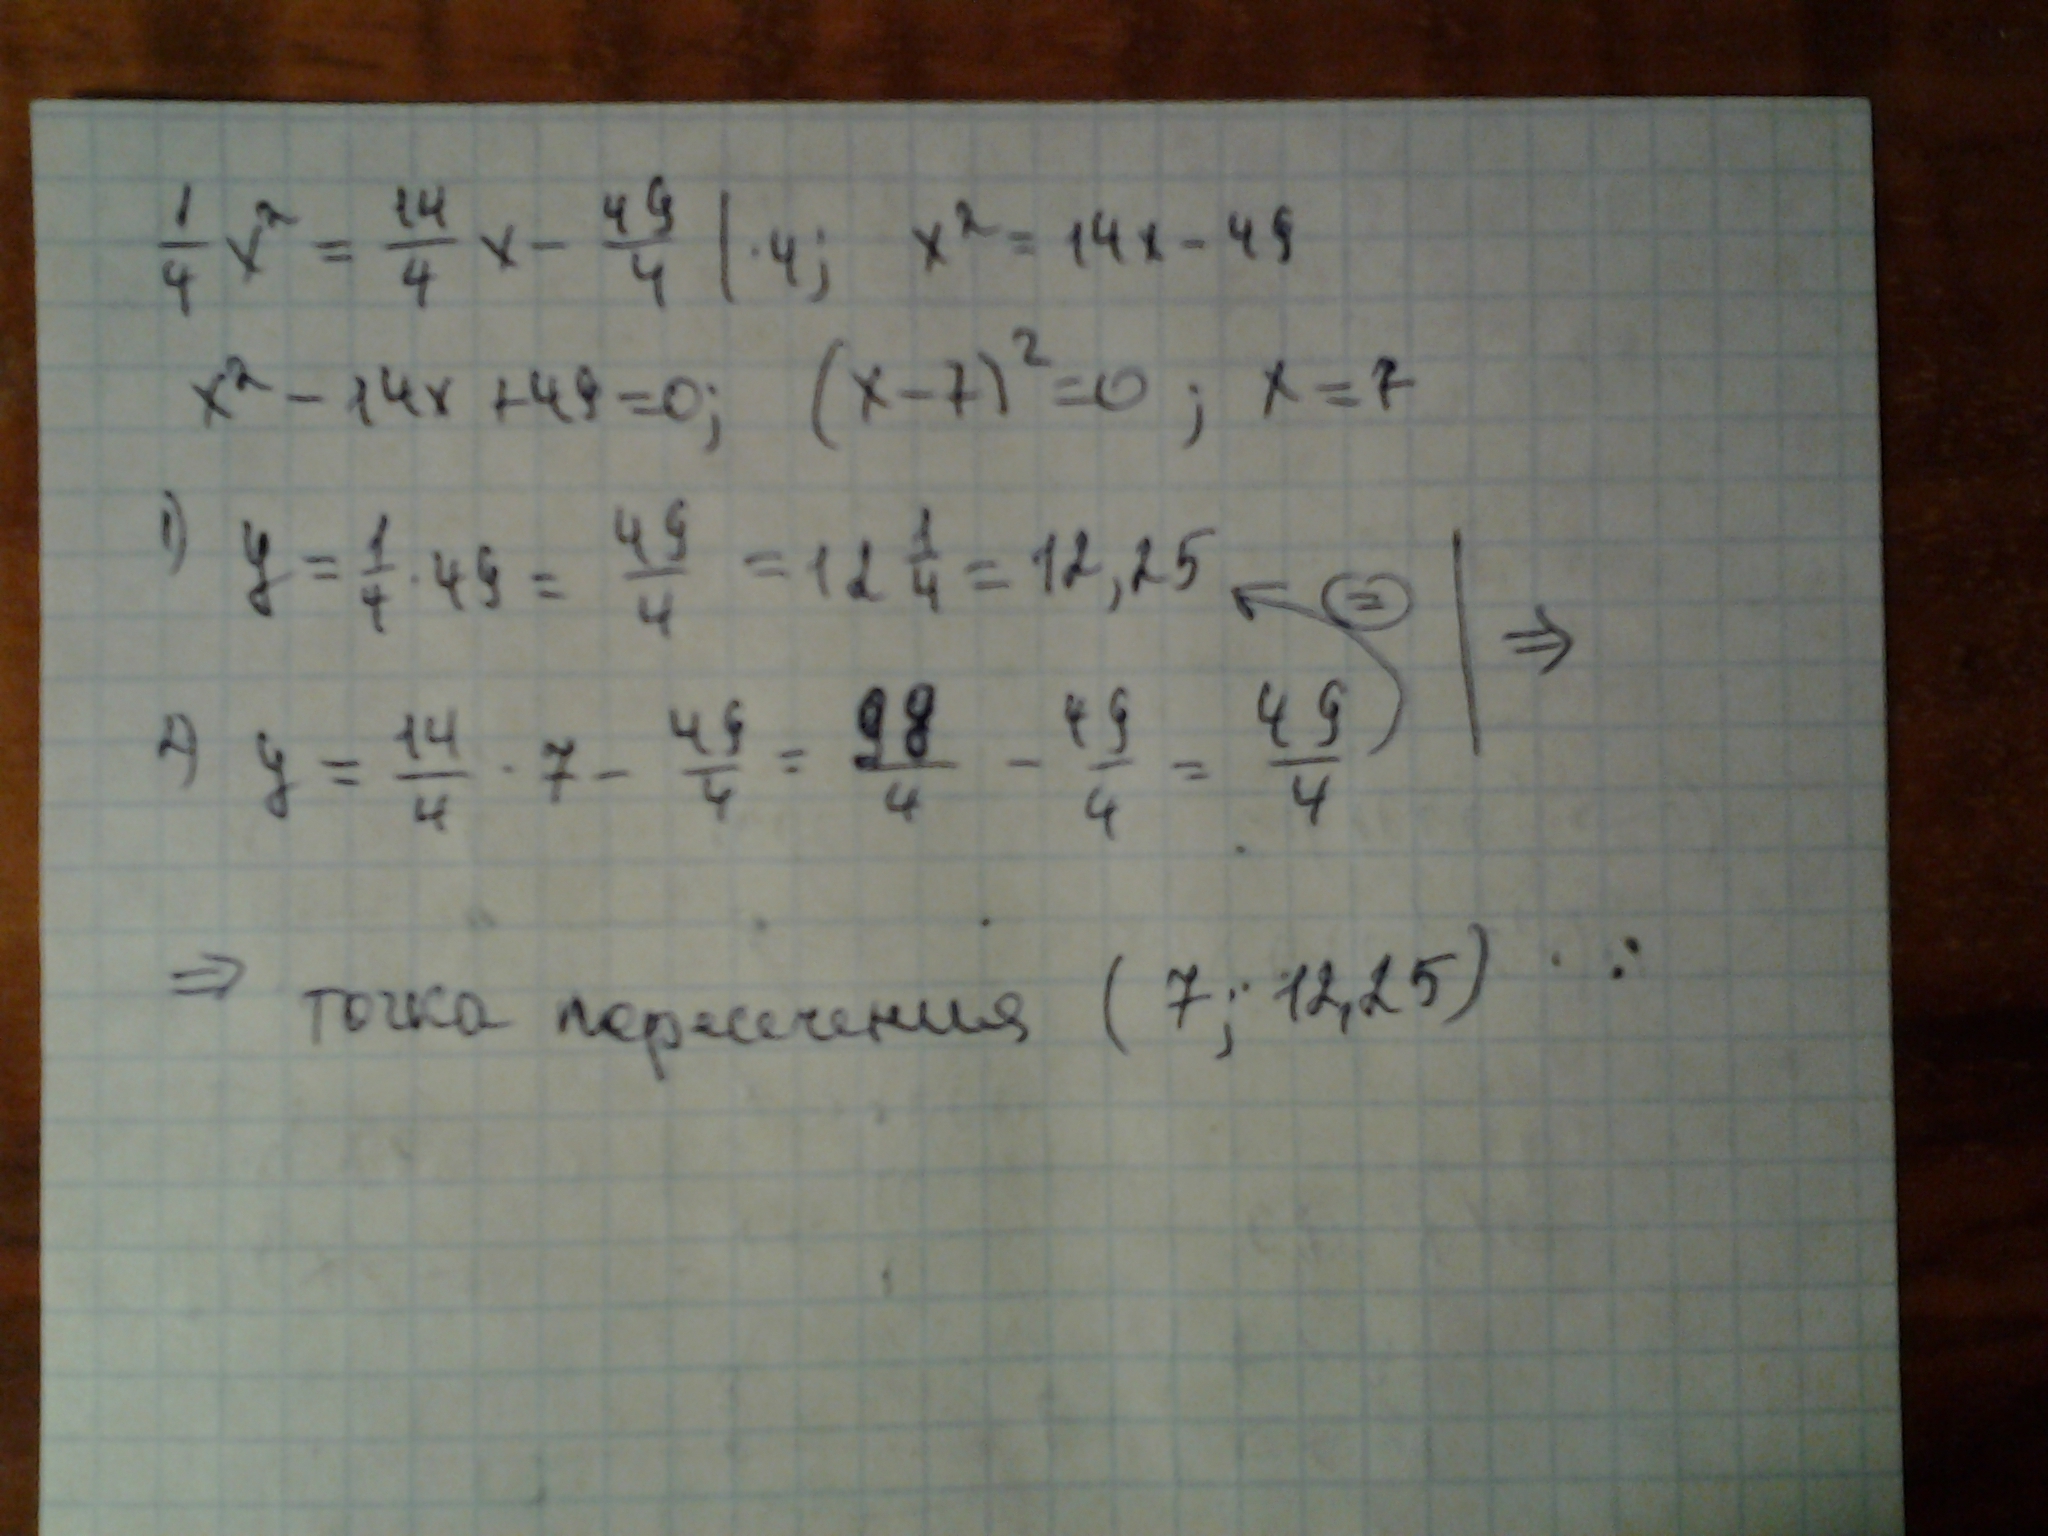 1/4 x² = 14/4 x - 49/4 | · 4; x² = 14x - 49
x² - 14x + 49 = 0; (x - 7)² = 0; x = 7
1) y = 1/4 · 49 = 49/4 = 12 1/4 = 12,25 = ⇒
2) y = 14/4 · 7 - 49/4 = 98/4 - 49/4 = 49/4
⇒ точка пересечения (7; 12,25)